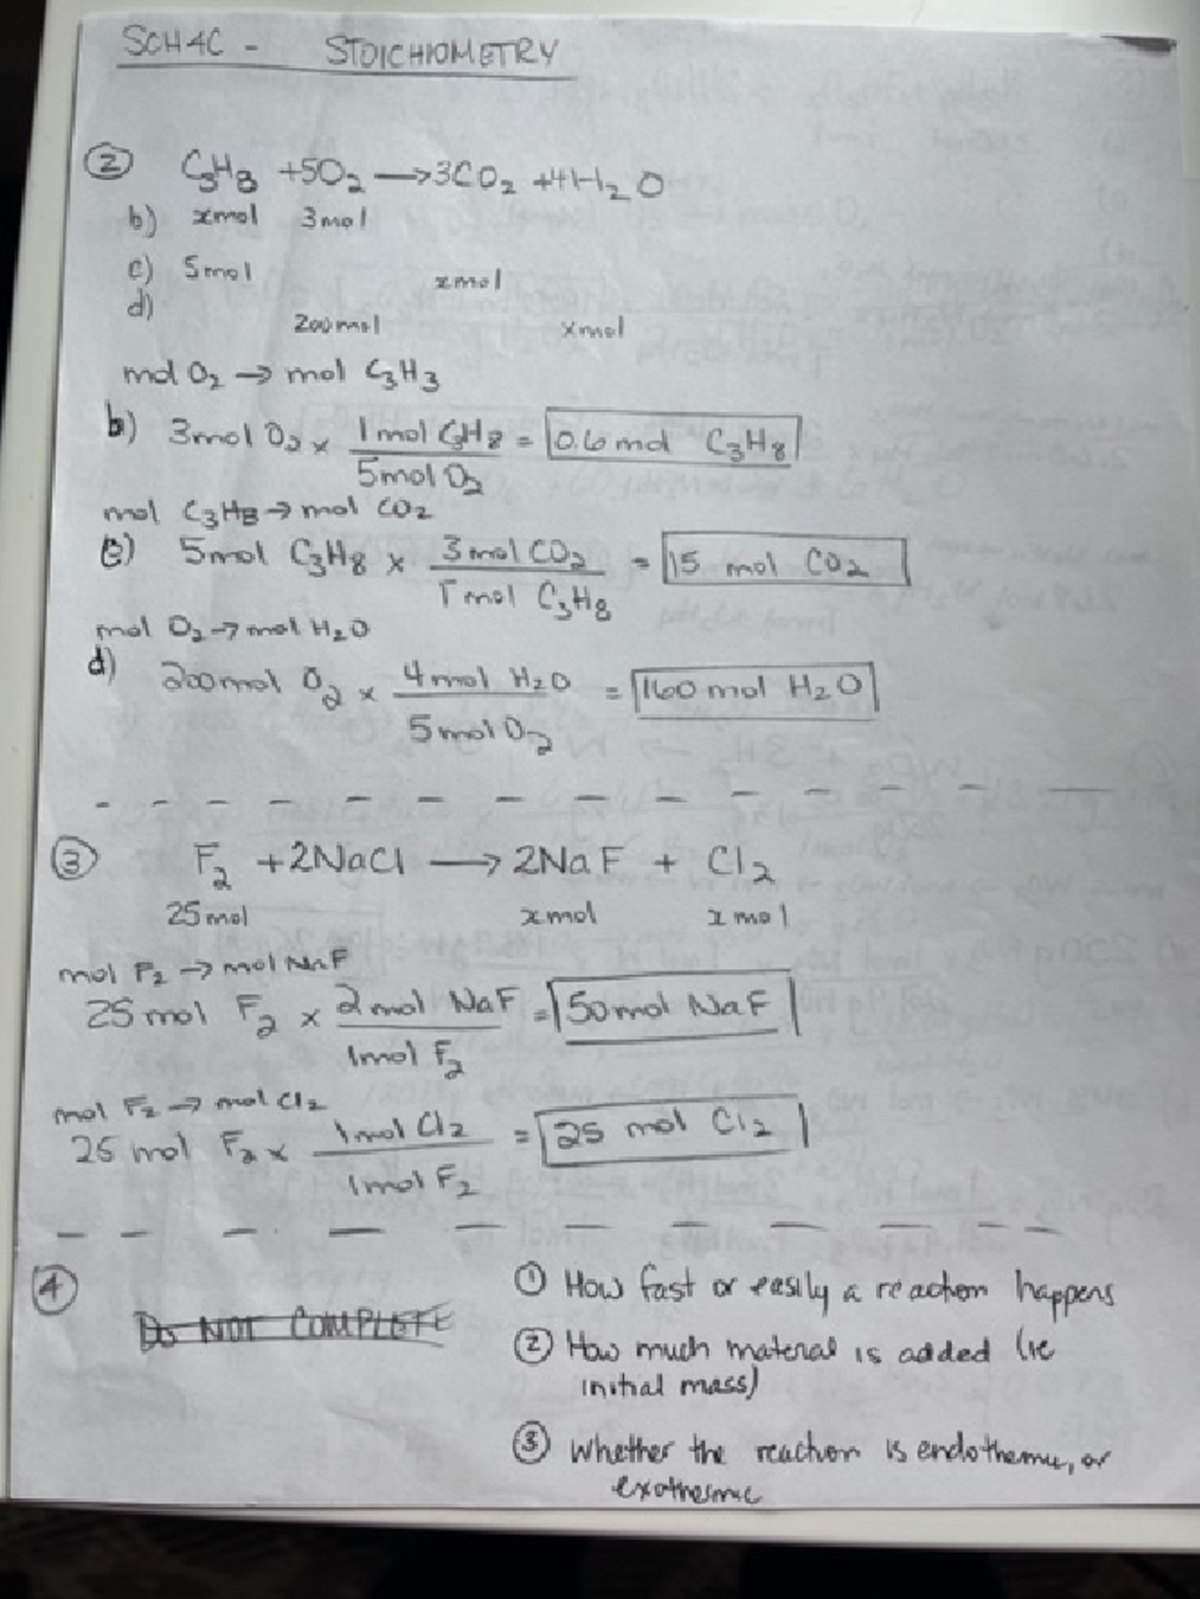 SCH4C - STOICHIOMETRY
② C₃H₈ +5O₂ → 3CO₂ +4H₂O
b) xmol 3mol
c) 5mol xmol
d)
200mol xmol
mol O₂ → mol C₃H₃
b) 3mol O₂ x 1mol C₃H₈ / 5mol O₂ = 0.6 mol C₃H₈
mol C₃H₈ → mol CO₂
c) 5mol C₃H₈ x 3mol CO₂ / 1mol C₃H₈ = 15 mol CO₂
mol O₂ → mol H₂O
d) 200mol O₂ x 4mol H₂O / 5mol O₂ = 160 mol H₂O
③ F₂ +2NaCl → 2NaF + Cl₂
25mol xmol xmol
mol F₂ → mol NaF
25 mol F₂ x 2mol NaF / 1mol F₂ = 50mol NaF
mol F₂ → mol Cl₂
25 mol F₂ x 1mol Cl₂ / 1mol F₂ = 25 mol Cl₂
④ DO NOT COMPLETE
① How fast or easily a reaction happens
② How much material is added (ie
initial mass)
③ Whether the reaction is endothermic, or
exothermic